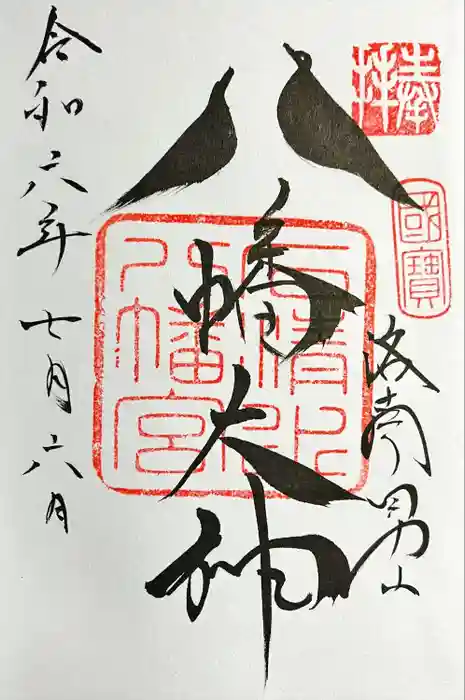 奉拝
國寶
洛南男山
八幡大神
石清水
八幡宮
令和六年七月六月